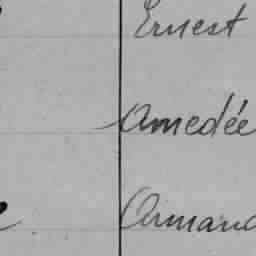 Ernest
Amedée
Armand